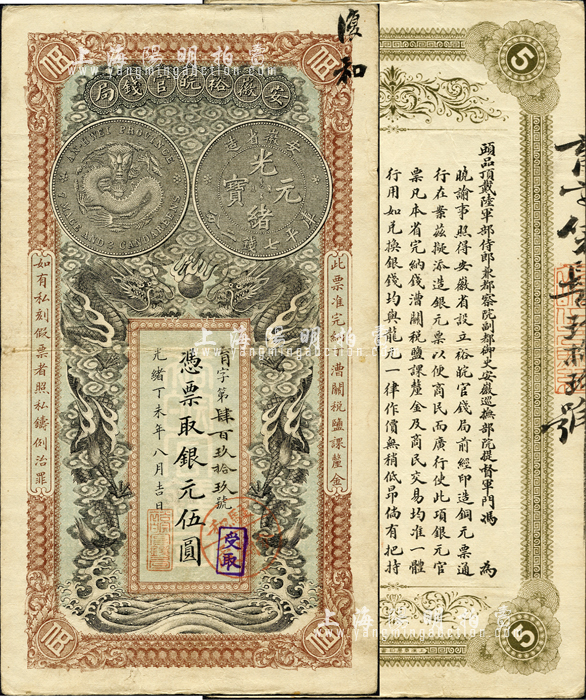 安徽裕皖官錢局
安徽省造
光緒元寶
庫平七錢二分
AN-HWEI PROVINCE
7 MACE AND 2 CANDAREENS
此票准完納丁漕關稅鹽課釐金
字第肆百玖拾玖號
憑票取銀元伍圓
光緒丁未年八月吉日
如有私刻假票者照私鑄例治罪
受取
伍
伍
伍
伍
復和
5
5
頭品頂戴陸軍部侍郎兼都察院副都御史安徽巡撫部院提督軍門馮 為
曉諭事照得安徽省設立裕皖官錢局前經印造銅元票通
行在案茲擬添造銀元票以便商民而廣行使此項銀元官
票凡本省完納錢漕關稅鹽課釐金及商民交易均准一體
行用如兌換銀錢均與龍元一律作價無稍低昂倘有把持
上海陽明拍賣
www.yangmingauction.com
上海陽明拍賣
www.yangmingauction.com
上海陽明拍賣
www.yangmingauction.com